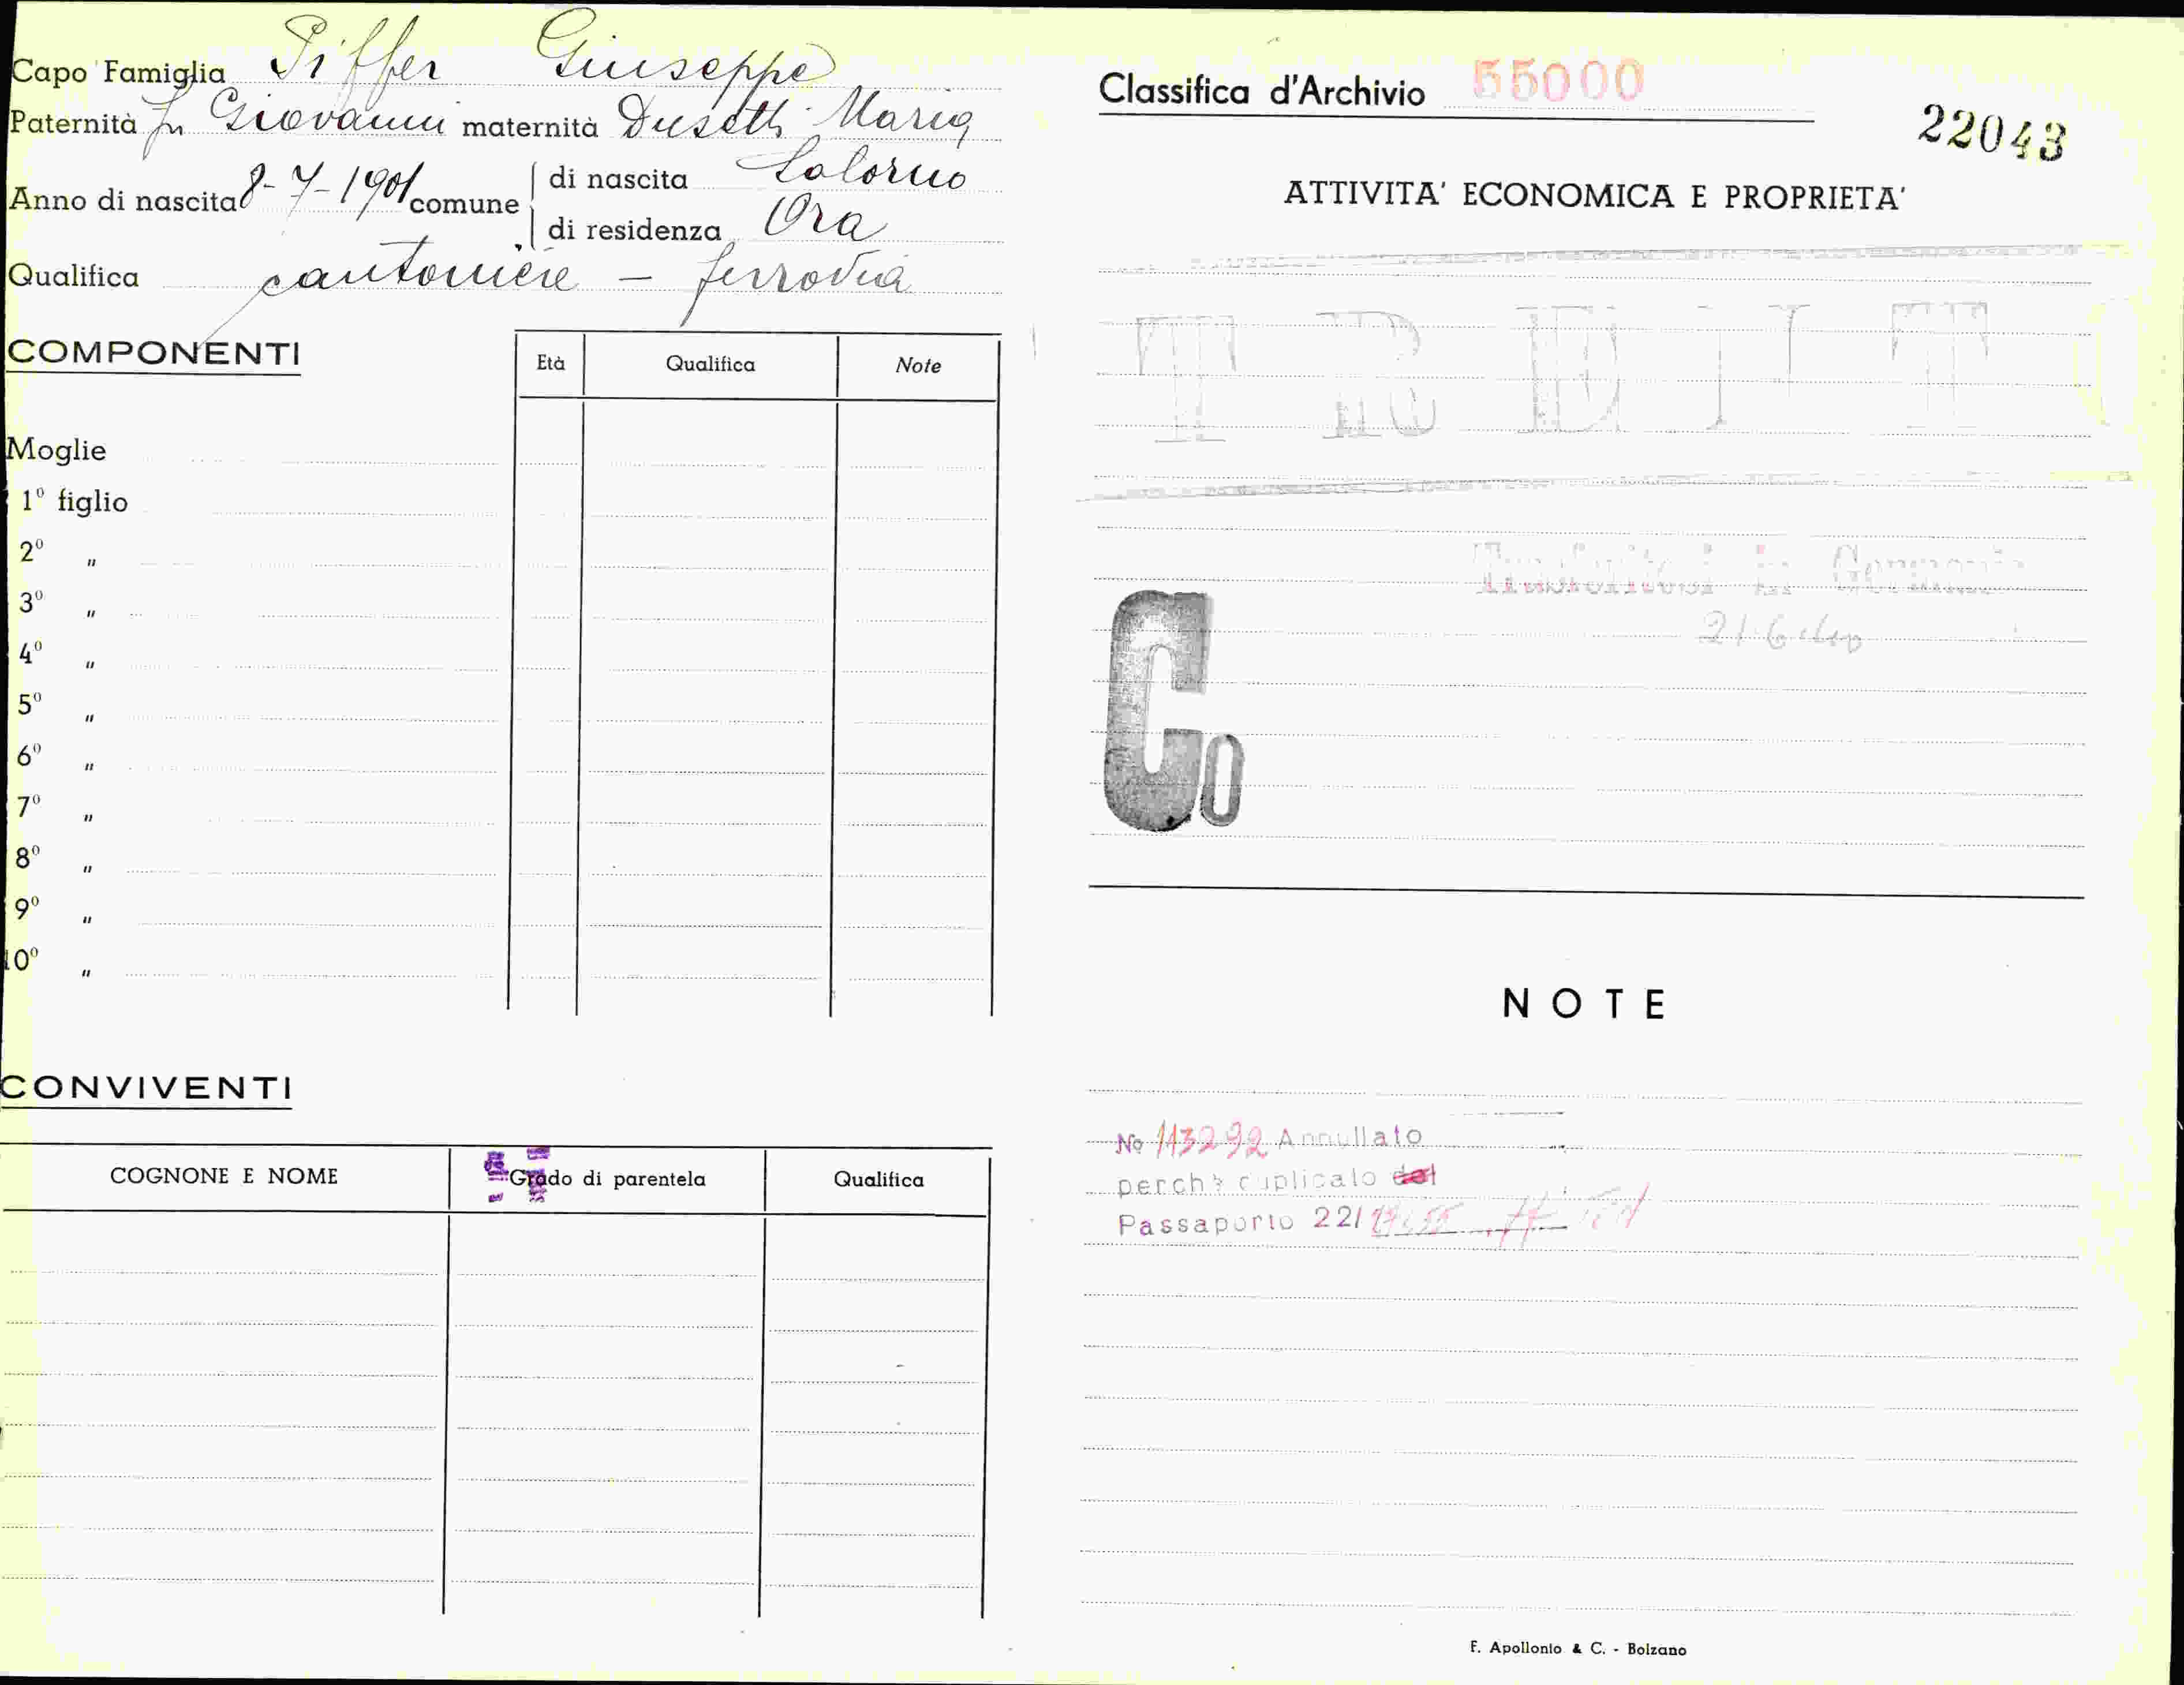 Capo Famiglia Piffer Giuseppe
Paternità fu Giovanni maternità Dusetti Maria
Anno di nascita 8-7-1901 comune di nascita Salorno
di residenza Ora
Qualifica cantoniere - ferrovia
COMPONENTI
Età Qualifica Note
Moglie
1º figlio
2º "
3º "
4º "
5º "
6º "
7º "
8º "
9º "
10º "
CONVIVENTI
COGNONE E NOME Grado di parentela Qualifica
Classifica d'Archivio 55000
22043
ATTIVITA' ECONOMICA E PROPRIETA'
Trasferitosi in Germania
21.6.40
Co
NOTE
No 113292 Annullato
perchè duplicato del
Passaporto 22/
F. Apollonio & C. - Bolzano